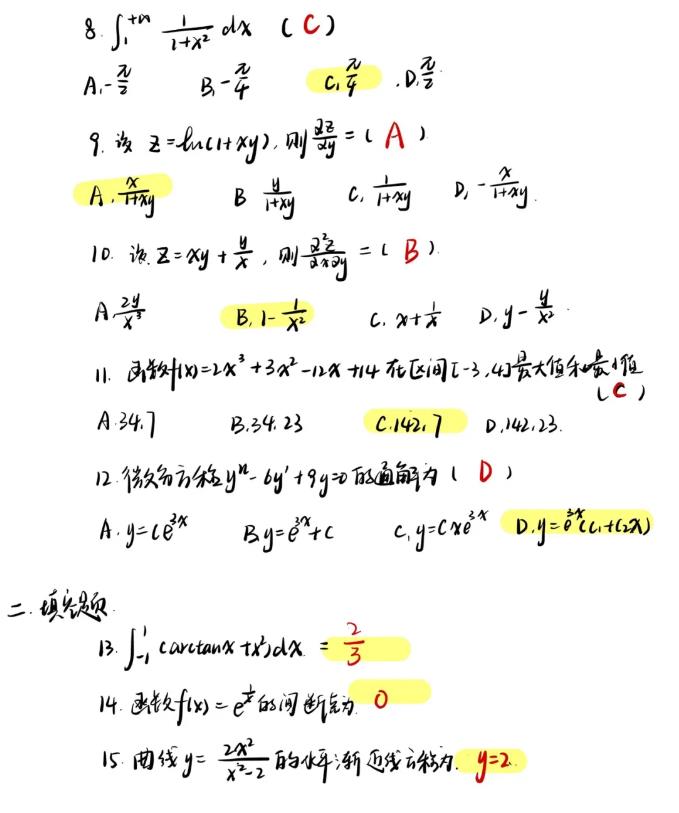 8. ∫₁^{+∞} 1/(1+x²) dx (C)
A. -π/2 B. -π/4 C. π/4 . D. π/2
9. 设 z=ln(1+xy), 则 ∂z/∂y = ( A )
A. x/(1+xy) B y/(1+xy) C. 1/(1+xy) D. -x/(1+xy).
10. 设 z=xy+y/x, 则 ∂²z/∂x∂y = ( B ).
A. 2y/x³ B. 1-1/x² C. x+1/x D. y-y/x².
11. 函数f(x)=2x³+3x²-12x+14 在区间[-3,4]最大值和最小值
( C )
A.34.7 B.34.23 C.142,7 D.142.23.
12.微分方程y''-6y'+9y=0的通解为 ( D )
A. y=Ce^{3x} B. y=e^{3x}+C C. y=Cxe^{3x} D.y=e^{3x}(C₁+C₂x)
二.填空题.
13. ∫₋₁^1 (arctanx+x²)dx = 2/3
14. 函数f(x)=e^{1/x}的间断点为. 0
15. 曲线y= 2x²/(x²-2) 的水平渐近线方程为. y=2.